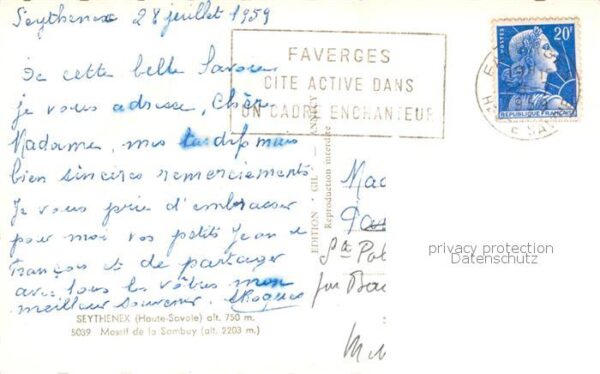 Seythenex 28 juillet 1959
De cette belle Savoie
je vous adresse, Chère
Madame, mes tardifs mais
bien sincères remerciements
Je vous prie d'embrasser
pour moi vos petits Jean et
François et de partager
avec tous les vôtres mon
meilleur souvenir.
SEYTHENEX (Haute-Savoie) alt. 750 m.
5039 Massif de la Sambuy (alt. 2203 m.)
FAVERGES
CITE ACTIVE DANS
UN CADRE ENCHANTEUR
EDITION "GIL" - ANNECY
Reproduction interdite
POSTES
20F
REPUBLIQUE FRANÇAISE
privacy protection
Datenschutz